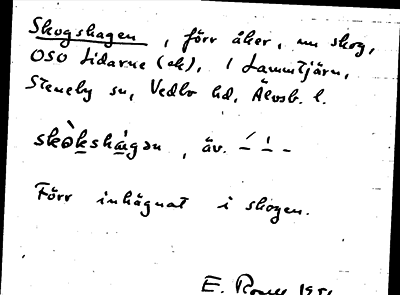 Skogshagen, förr åker, nu skog,
OSO Lidarne (ak), 1 Lammtjärn,
Steneby sn, Vedbo hd, Älvsb. l.
skò̀kshá̀gən, äv.
Förr inhägnat i skogen.
E.